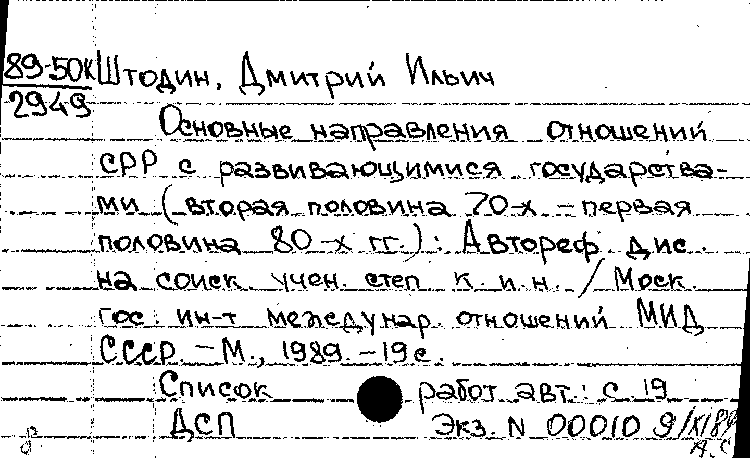 89-50К Штодин, Дмитрий Ильич
2949
Основные направления отношений
СРР с развивающимися государства-
ми (вторая половина 70-х - первая
половина 80-х гг.): Автореф. дис.
на соиск. учен. степ. к. и. н. / Моск.
гос. ин-т междунар. отношений МИД
СССР. - М., 1989. - 19 с.
Список работ авт.: с. 19
ДСП Экз. N 00010 9/XI89
А.С